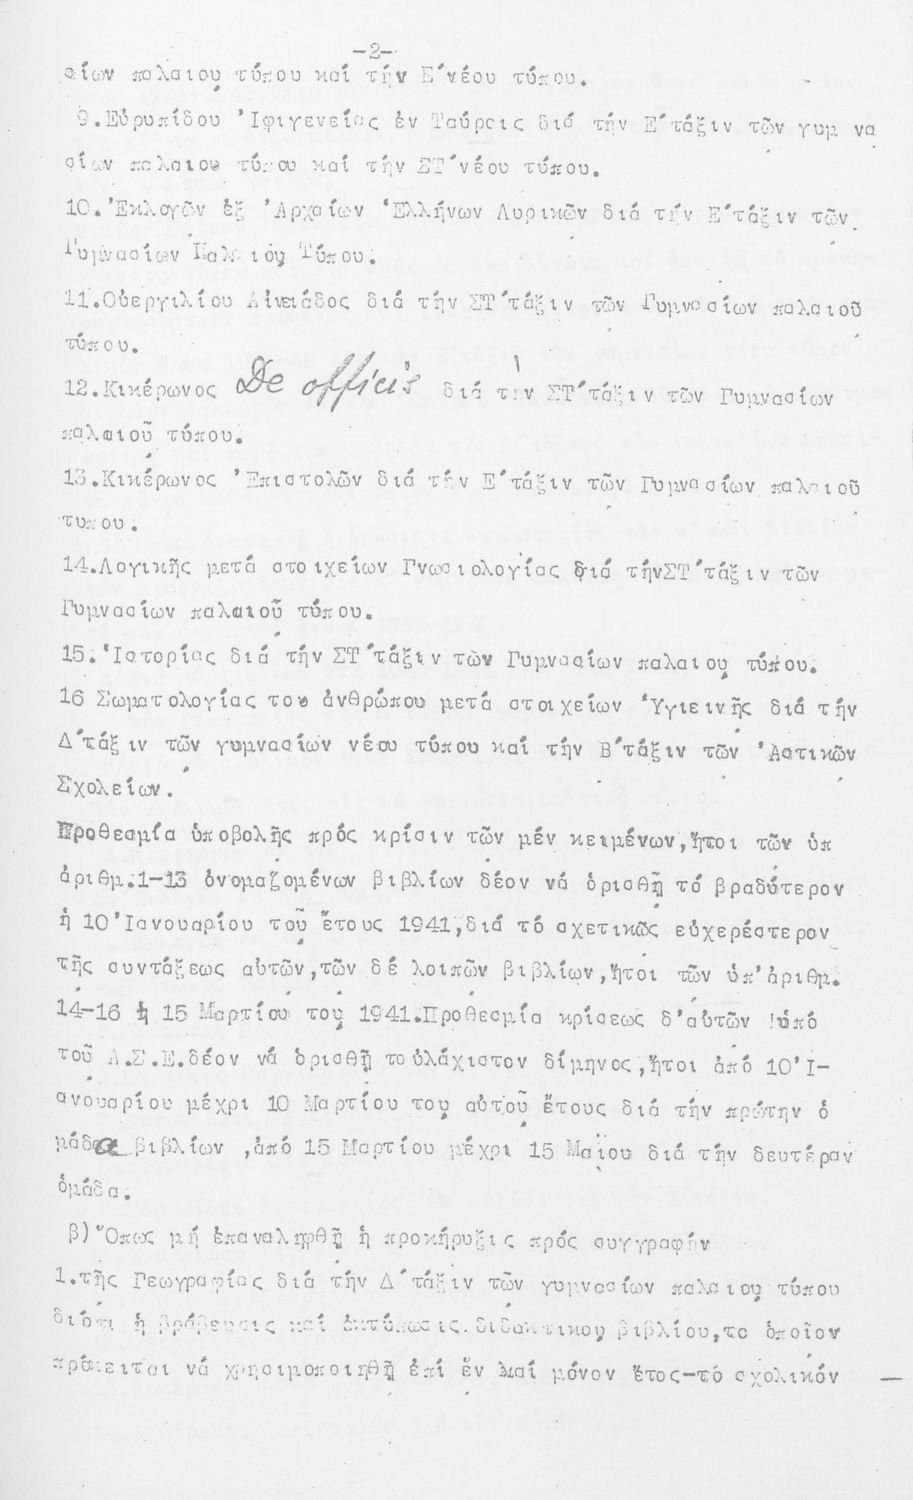 -2-
σίων παλαιού τύπου καί τήν Ε΄νέου τύπου.
9.Εὐρυπίδου Ἰφιγενείας ἐν Ταύροις διά τήν Ε΄τάξιν τῶν γυμ να
σίων παλαιου τύπου καί τήν ΣΤ΄νέου τύπου.
10.Ἐκλογῶν ἐξ Ἀρχαίων Ἑλλήνων Λυρικῶν διά τήν Ε΄τάξιν τῶν
Γυμνασίων Παλαιοῦ Τύπου.
11.Οὐεργιλίου Αἰνειάδος διά τήν ΣΤ΄τάξιν τῶν Γυμνασίων παλαιοῦ
τύπου.
12.Κικέρωνος De officis διά τήν ΣΤ΄τάξιν τῶν Γυμνασίων
παλαιοῦ τύπου.
13.Κικέρωνος Ἐπιστολῶν διά τήν Ε΄τάξιν τῶν Γυμνασίων παλαιοῦ
τυπου.
14.Λογικῆς μετά στοιχείων Γνωσιολογίας διά τήνΣΤ΄τάξιν τῶν
Γυμνασίων παλαιοῦ τύπου.
15.Ἱστορίας διά τήν ΣΤ΄τάξιν τῶν Γυμνασίων παλαιου τύπου.
16 Σωματολογίας του ἀνθρώπου μετά στοιχείων Ὑγιεινῆς διά τήν
Δ΄τάξιν τῶν γυμνασίων νέου τύπου καί τήν Β΄τάξιν τῶν Ἀστικῶν
Σχολείων.
Προθεσμία ὑποβολῆς πρός κρίσιν τῶν μέν κειμένων,ἤτοι τῶν ὑπ
ἀριθμ.1-13 ὀνομαζομένων βιβλίων δέον νά ὁρισθῇ τό βραδύτερον
ἡ 10 Ἰανουαρίου τοῦ ἔτους 1941,διά τό σχετικῶς εὐχερέστερον
τῆς συντάξεως αὐτῶν,τῶν δέ λοιπῶν βιβλίων,ἤτοι τῶν ὑπ'ἀριθμ.
14-16 ἡ 15 Μαρτίου του 1941.Προθεσμία κρίσεως δ'αὐτῶν ὑπό
τοῦ Α.Σ.Ε.δέον νά ὁρισθῇ τοὐλάχιστον δίμηνος,ἤτοι ἀπό 10 Ἰ-
ανουαρίου μέχρι 10 Μαρτίου του αὐτοῦ ἔτους διά τήν πρώτην ὁ
μάδα βιβλίων ,ἀπό 15 Μαρτίου μέχρι 15 Μαΐου διά τήν δευτέραν
ὁμάδα.
β)Ὅπως μή ἐπαναληφθῇ ἡ προκήρυξις πρός συγγραφήν
1.τῆς Γεωγραφίας διά τήν Δ΄τάξιν τῶν γυμνασίων παλαιου τύπου
διότι ἡ βράβευσις καί ἐκτύπωσις διδακτικου βιβλίου,το ὁποῖον
πρόκειται νά χρησιμοποιηθῇ ἐπί ἕν καί μόνον ἔτος-τό σχολικόν —